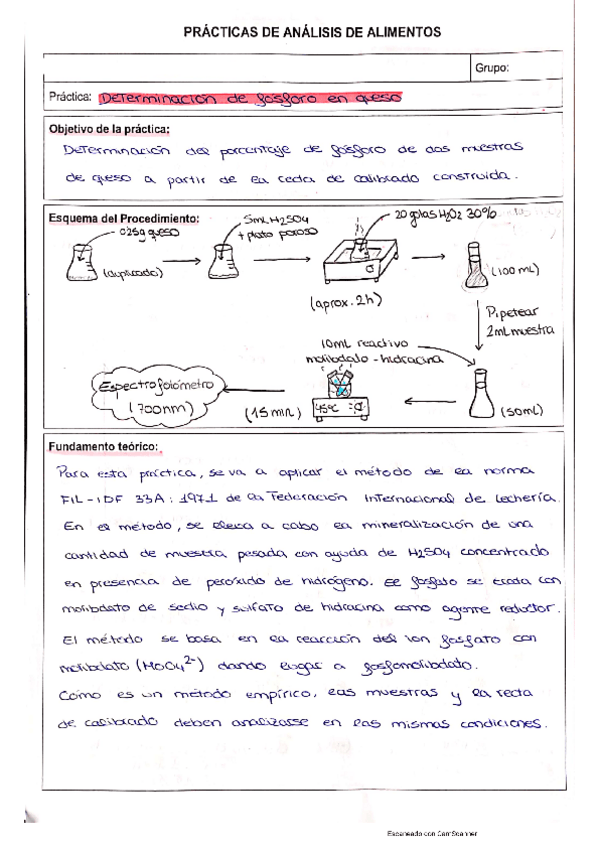 PRÁCTICAS DE ANÁLISIS DE ALIMENTOS
Grupo:
Práctica: Determinación de fósforo en queso
Objetivo de la práctica:
Determinación del porcentaje de fósforo de dos muestras
de queso a partir de la recta de calibrado construida.
Esquema del Procedimiento:
0'25g queso
(duplicado)
5mL H2SO4
+ plato poroso
(aprox. 2h)
20 gotas H2O2 30%
(100 mL)
Pipetear
2mL muestra
(50mL)
10mL reactivo
molibdato - hidracina
45ºC
(15 min)
Espectrofotómetro
(700nm)
Fundamento teórico:
Para esta práctica, se va a aplicar el método de la norma
FIL-IDF 33A: 1971 de la Federación Internacional de Lechería.
En el método, se lleva a cabo la mineralización de una
cantidad de muestra pesada con ayuda de H2SO4 concentrado
en presencia de peróxido de hidrógeno. El fosfato se trata con
molibdato de sodio y sulfato de hidracina como agente reductor.
El método se basa en la reacción del ion fosfato con
molibdato (MoO4 2-) dando lugar a fosfomolibdato.
Como es un método empírico, las muestras y la recta
de calibrado deben analizarse en las mismas condiciones.
Escaneado con CamScanner